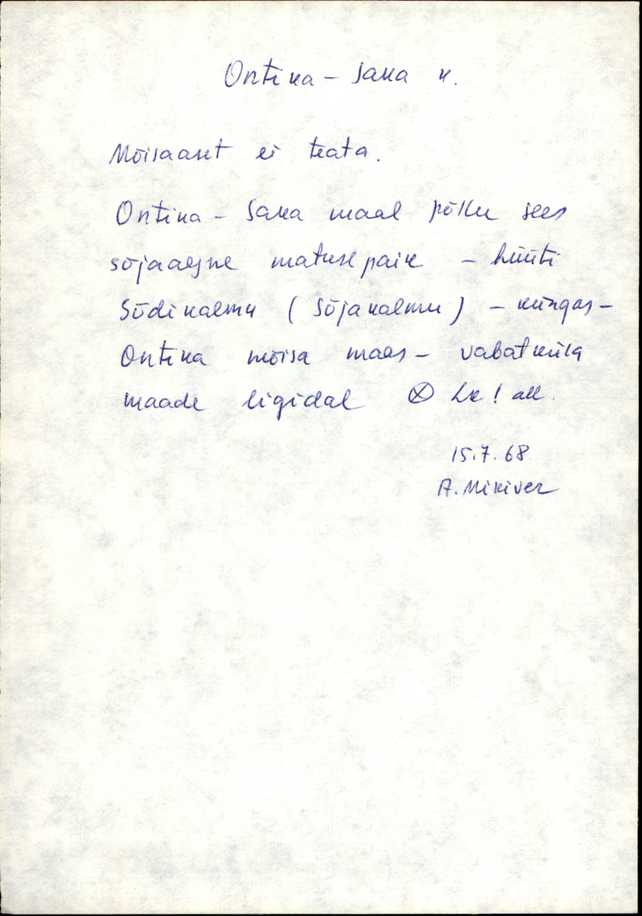 Ontika – Saka k.
Mõisaaset ei teata.
Ontika – Saka maal põllu sees
sõjaaegne matusepaik – hüüti
Sõdikalmu (Sõjakalmu) – küngas –
Ontika mõisa maas – vabatküla
maade ligidal ⊗ Lk! all.
15.7.68
A. Mikiver